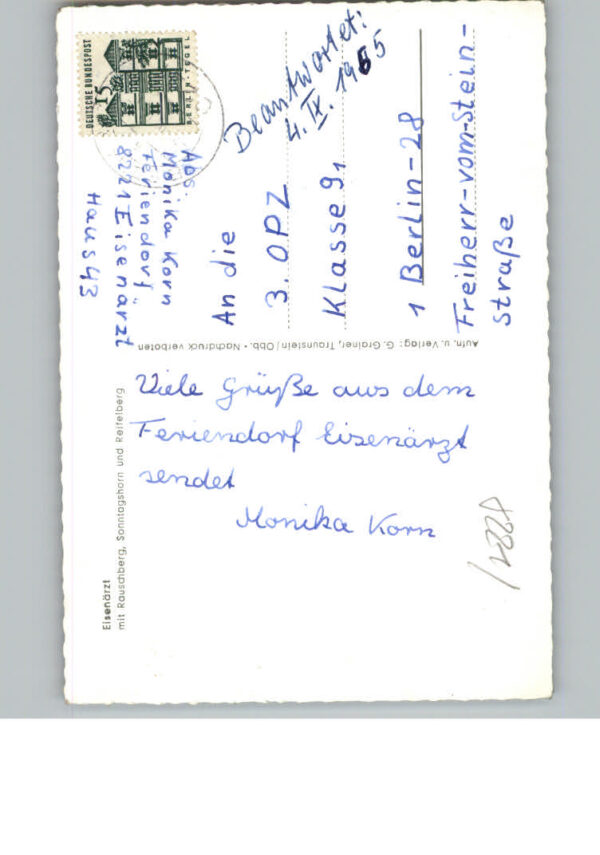 Eisenärzt
mit Rauschberg, Sonntagshorn und Reifelberg
Viele Grüße aus dem
Feriendorf Eisenärzt
sendet
Monika Korn
Aufn. u. Verlag: G. Grainer, Traunstein/Obb. • Nachdruck verboten
DEUTSCHE BUNDESPOST
15
BERLIN-TEGEL
Beantwortet:
4. IX. 1965
Abs.:
Monika Korn
Feriendorf
8221 Eisenärzt
Haus 43
An die
3. OPZ
Klasse 91
1 Berlin-28
Freiherr-vom-Stein-
straße